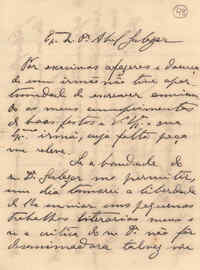 48
Ex. Sr. D. Abel Salazar
Por excessivos afazeres e doença
de um irmão não tive opor-
tunidade de escrever enviando
os meus cumprimentos
de boas festas a V. Ex. e sua
Ex. irmã, cuja falta peço
me releve.
Se a bondade de
D. Salazar me permitir
um dia tomarei a liberdade
de lhe enviar uns pequenos
trabalhos literarios meus e
se a critica de não for
desanimadora talvez me